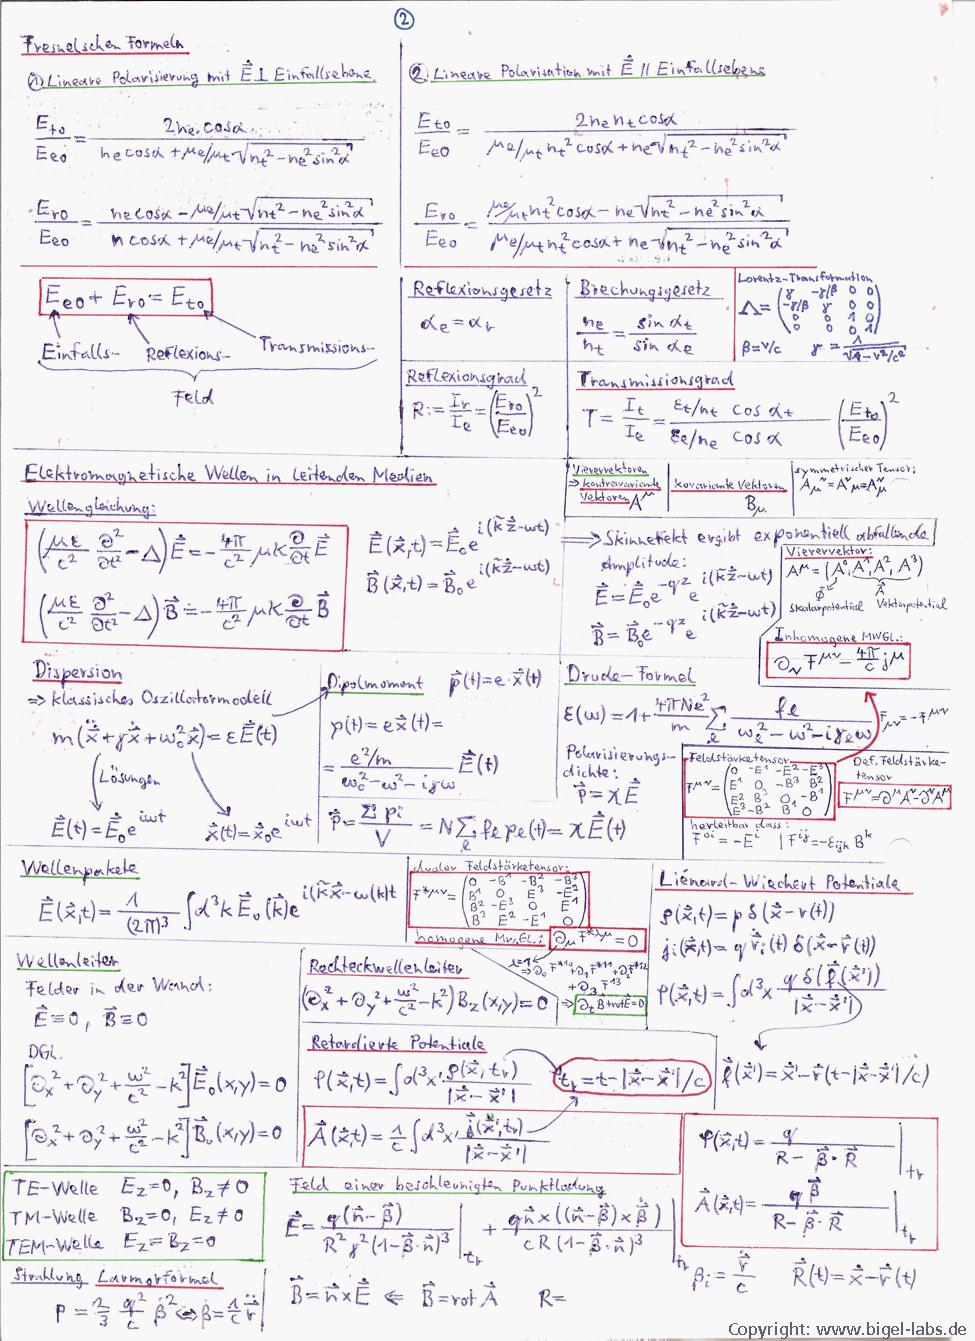 2
Fresnelschen Formeln
① Lineare Polarisierung mit E⃗ ⊥ Einfallsebene
E_to/E_eo = 2n_e cosα / (n_e cosα + μ_e/μ_t √(n_t² - n_e² sin²α))
E_ro/E_eo = (n_e cosα - μ_e/μ_t √(n_t² - n_e² sin²α)) / (n cosα + μ_e/μ_t √(n_t² - n_e² sin²α))
② Lineare Polarisation mit E⃗ || Einfallsebene
E_to/E_eo = 2n_e n_t cosα / (μ_e/μ_t n_t² cosα + n_e √(n_t² - n_e² sin²α))
E_ro/E_eo = (μ_e/μ_t n_t² cosα - n_e √(n_t² - n_e² sin²α)) / (μ_e/μ_t n_t² cosα + n_e √(n_t² - n_e² sin²α))
E_eo + E_ro = E_to
Einfalls- Reflexions- Transmissions-
Feld
Reflexionsgesetz
α_e = α_r
Brechungsgesetz
n_e/n_t = sin α_t / sin α_e
Lorentz-Transformation
Λ = (γ -γβ 0 0
-γβ γ 0 0
0 0 1 0
0 0 0 1)
β = v/c γ = 1/√(1 - v²/c²)
Reflexionsgrad
R := I_r/I_e = (E_ro/E_eo)²
Transmissionsgrad
T = I_t/I_e = (ε_t/n_t cos α_t)/(ε_e/n_e cos α) (E_to/E_eo)²
Elektromagnetische Wellen in leitenden Medien
Wellengleichung:
(με/c² ∂²/∂t² - Δ) E⃗ = -4π/c² μK ∂/∂t E⃗
(με/c² ∂²/∂t² - Δ) B⃗ = -4π/c² μK ∂/∂t B⃗
E⃗(x⃗,t) = E⃗_0 e^{i(k̃z⃗-ωt)}
B⃗(x⃗,t) = B⃗_0 e^{i(k̃z⃗-ωt)}
Vierervektoren
⇒ kontravariante Vektoren A^μ
kovariante Vektoren B_μ
symmetrischer Tensor:
A_μ^ν = A^ν_μ = A^ν_μ
⇒ Skinneffekt ergibt exponentiell abfallende
Amplitude:
E⃗ = E⃗_0 e^{-qz} e^{i(k̃z-ωt)}
B⃗ = B⃗_0 e^{-qz} e^{i(k̃z-ωt)}
Vierervektor:
A^μ = (A⁰, A¹, A², A³)
Φ A⃗
Skalarpotential Vektorpotential
Inhomogene MWGL.:
∂_ν F^{μν} = 4π/c j^μ
Dispersion
⇒ klassisches Oszillatormodell
m(ẍ⃗ + γẋ⃗ + ω_0² x⃗) = εE⃗(t)
Lösungen
E⃗(t) = E⃗_0 e^{iωt} x⃗(t) = x⃗_0 e^{iωt}
Dipolmoment p⃗(t) = e·x⃗(t)
p(t) = e x⃗(t) =
= (e²/m)/(ω_0² - ω² - iγω) E⃗(t)
P⃗ = Σ p_i / V = N Σ_l f_l p_e(t) = χ E⃗(t)
Drude-Formel
ε(ω) = 1 + 4πNe²/m Σ_l f_l/(ω_l² - ω² - iγ_l ω)
Polarisierungs-
dichte:
P⃗ = χE⃗
F_μν = -F^{μν}
Feldstärketensor
F^{μν} = (0 -E¹ -E² -E³
E¹ 0 -B³ B²
E² B³ 0 -B¹
E³ -B² B¹ 0)
herleitbar dass:
F^{0i} = -E^i | F^{ij} = -ε_ijk B^k
Def. Feldstärke-
tensor
F^{μν} = ∂^μA^ν - ∂^νA^μ
Wellenpakete
E⃗(x⃗,t) = 1/(2π)³ ∫d³k E⃗_0(k⃗) e^{i(k⃗x⃗-ω(k)t}
dualer Feldstärketensor:
F*^{μν} = (0 -B¹ -B² -B³
B¹ 0 E³ -E²
B² -E³ 0 E¹
B³ E² -E¹ 0)
homogene MWGL.: ∂_μ F*^{λμ} = 0
λ=1 ⇒ ∂_0 F*¹⁰ + ∂_1 F*¹¹ + ∂_2 F*¹²
+ ∂_3 F¹³
⇒ ∂_t B + rot E = 0
Liénard-Wiechert Potentiale
ρ(x⃗,t) = p δ(x⃗ - r(t))
j_i(x⃗,t) = q ṙ⃗_i(t) δ(x⃗ - r⃗(t))
φ(x⃗,t) = ∫d³x q δ(f⃗(x⃗'))/|x⃗-x⃗'|
f⃗(x⃗') = x⃗' - r⃗(t - |x⃗-x⃗'|/c)
Wellenleiter
Felder in der Wand:
E⃗ ≡ 0, B⃗ ≡ 0
DGL.
[∂_x² + ∂_y² + ω²/c² - k²] E⃗_0(x,y) = 0
[∂_x² + ∂_y² + ω²/c² - k²] B⃗_0(x,y) = 0
Rechteckwellenleiter
(∂_x² + ∂_y² + ω²/c² - k²) B_z(x,y) = 0
Retardierte Potentiale
φ(x⃗,t) = ∫d³x' ρ(x⃗,t_r)/|x⃗-x⃗'|
t_r = t - |x⃗-x⃗'|/c
A⃗(x⃗,t) = 1/c ∫d³x' j⃗(x⃗',t_r)/|x⃗-x⃗'|
φ(x⃗,t) = q/(R - β⃗·R⃗) |_{t_r}
A⃗(x⃗,t) = qβ⃗/(R - β⃗·R⃗) |_{t_r}
TE-Welle E_z=0, B_z≠0
TM-Welle B_z=0, E_z≠0
TEM-Welle E_z=B_z=0
Feld einer beschleunigten Punktladung
E⃗ = q(n⃗-β⃗)/(R²γ²(1-β⃗·n⃗)³) |_{t_r} + qn⃗×((n⃗-β⃗)×β̇⃗)/(cR(1-β⃗·n⃗)³) |_{t_r}
B⃗ = n⃗×E⃗ ⇐ B⃗ = rot A⃗ R=
β_i = ṙ⃗/c R⃗(t) = x⃗ - r⃗(t)
Strahlung Larmorformel
P = 2/3 q²/c β̇² ⇔ β̇ = 1/c r̈⃗
Copyright: www.bigel-labs.de